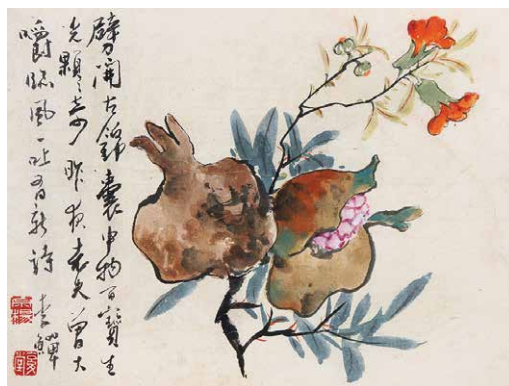 劈開古錦囊中物百寶生
光顆々奇昨夜老夫曾大
嚼臨風一吐有新詩 李鱓